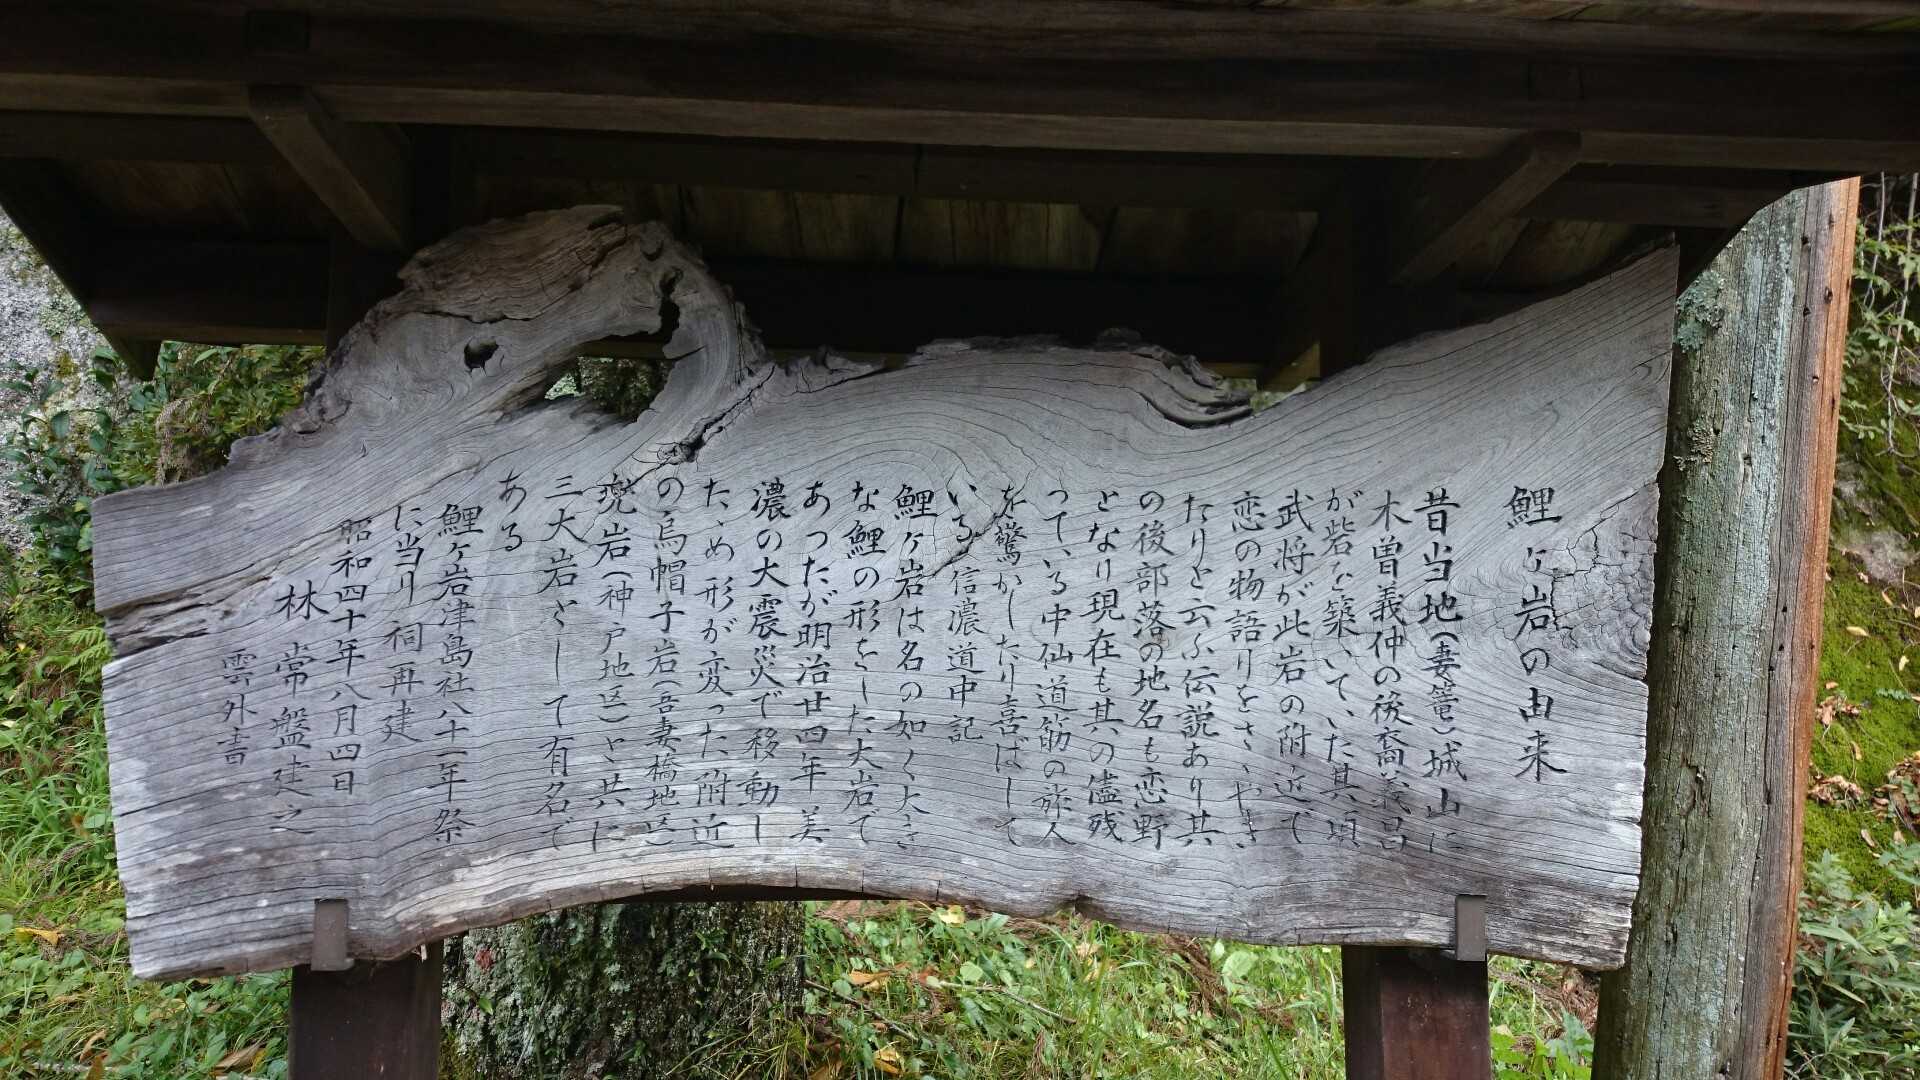 鯉ヶ岩の由来
昔当地(妻篭)城山に
木曽義仲の後裔義昌
が砦を築いていた其頃
武将が此岩の附近で
恋の物語りをさゝやき
たりと云ふ伝説あり其
の後部落の地名も恋野
となり現在も其の儘残
っている中仙道筋の旅人
を驚かしたり喜ばして
いる信濃道中記
鯉ヶ岩は名の如く大き
な鯉の形をした大岩で
あったが明治廿四年美
濃の大震災で移動し
たゝめ形が変った附近
の烏帽子岩(吾妻橋地区)
兜岩(神戸地区)と共に
三大岩として有名で
ある
鯉ヶ岩津島社八十一年祭
に当り祠再建
昭和四十年八月四日
林常盤建之
雲外書